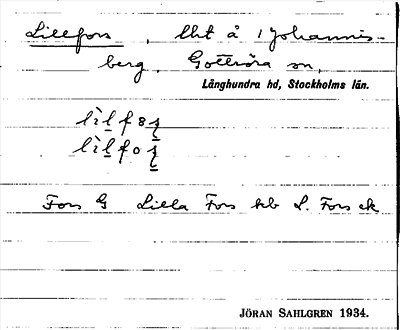 Lillfors, lht å 1 Johannis-
berg, Gottröra sn,
Långhundra hd, Stockholms län.
Fors G Lilla Fors hb L. Fors ek
JÖRAN SAHLGREN 1934.